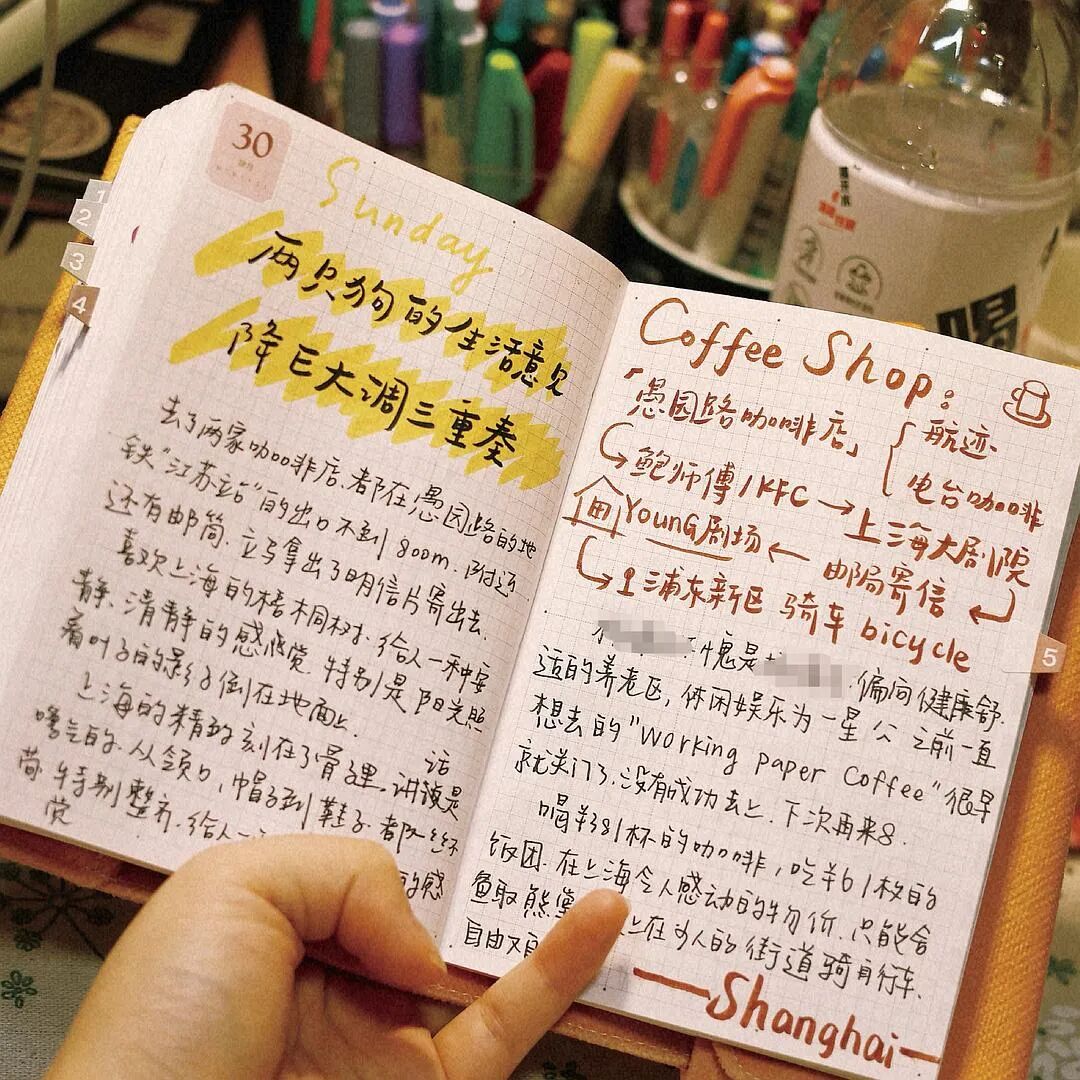 30
Sunday
两只狗的生活意见
降E大调三重奏
去了两家咖啡店.都在愚园路的地
铁"江苏站"的出口不到800m.附近
还有邮筒.立马拿出了明信片寄出去.
喜欢上海的梧桐树.给人一种安
静.清静的感觉.特别是阳光照
着叶子的影子倒在地面上
上海的精致刻在了骨子里.讲话
是
从领口,帽子到鞋子.都一丝不
苟 特别整齐.给人一
的感
觉
1
2
3
4
Coffee Shop:
「愚园路咖啡店」 航迹
电台咖啡
鲍师傅/KFC → 上海大剧院
YounG剧场 ← 邮局寄信
浦东新区 骑车 bicycle
愧是 偏向健康舒
适的养老区,休闲娱乐为一星公 之前一直
想去的"Working paper Coffee"很早
就关门了.没有成功去上.下次再来8.
喝¥381杯的咖啡,吃¥61枚的
饭团.在上海令人感动的物价.只能舍
鱼取熊掌
上在少人的街道骑自行车.
自由又自
Shanghai
5
喝